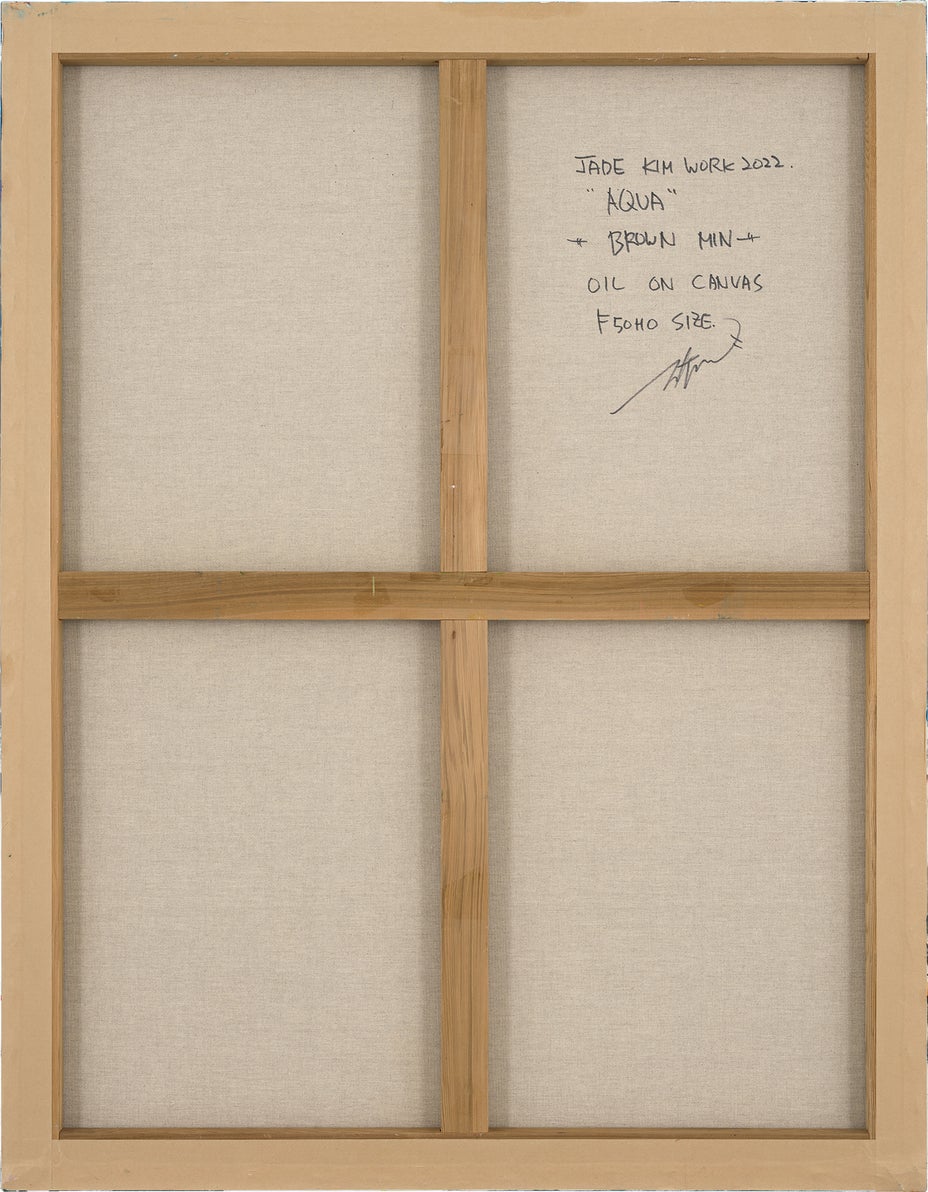 JADE KIM WORK 2022.
"AQUA"
BROWN MIN
OIL ON CANVAS
F50HO SIZE.